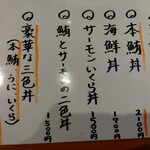 ○本鮪丼
2100
○海鮮丼
1700
○サーモンいくら丼
1500円
○鮪とサーモンの二色丼
1500円
○豪華な三色丼
(本鮪、うに、いくら)